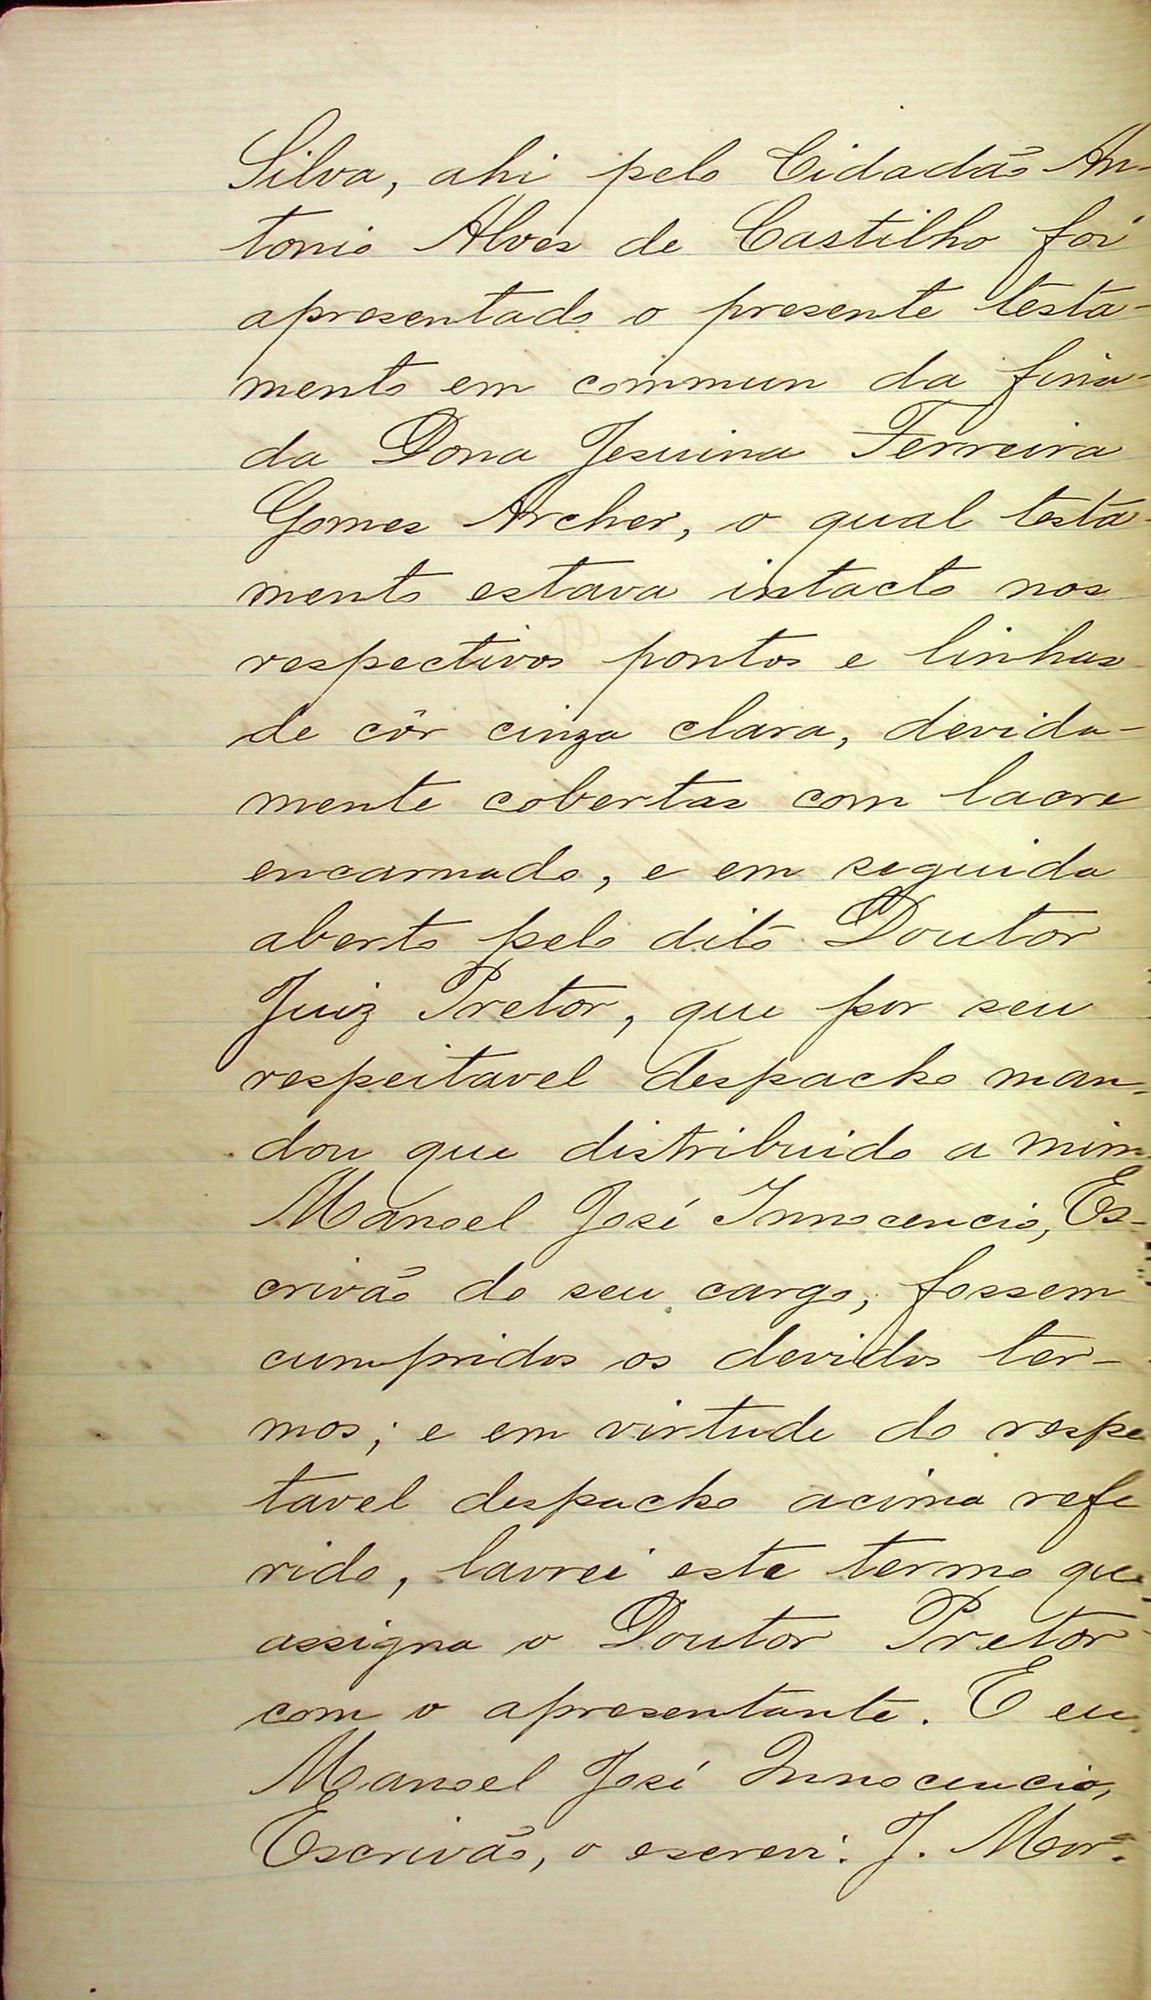 Silva, ahi pelo Cidadão An-
tonio Alves de Castilho foi
apresentado o presente testa-
mento em commun da fina-
da Dona Jesuina Ferreira
Gomes Archer, o qual testa-
mento estava intacto nos
respectivos pontos e linhas
de côr cinza clara, devida-
mente cobertas com lacre
encarnado, e em seguida
aberto pelo dito Doutor
Juiz Pretor, que por seu
respeitavel despacho man-
dou que distribuido a mim
Manoel José Innocencio, Es-
crivão do seu cargo, fossem
cumpridos os devidos ter-
mos; e em virtude do respe
tavel despacho acima refe
rido, lavrei este termo que
assigna o Doutor Pretor
com o apresentante. E eu
Manoel José Innocencio,
Escrivão, o escrevi. J. Mor